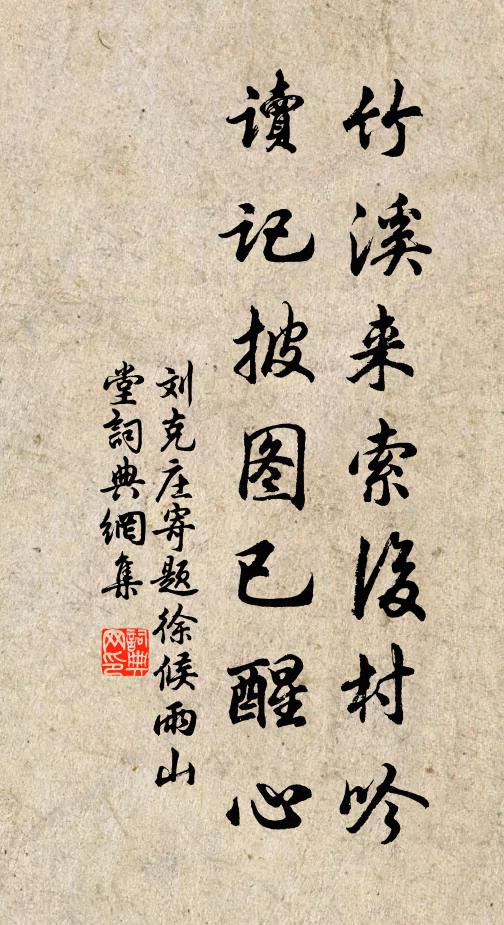 竹溪来索后村吟
读记披图已醒心
刘克庄寄题徐候雨山
堂詞典網集
詞典
网印